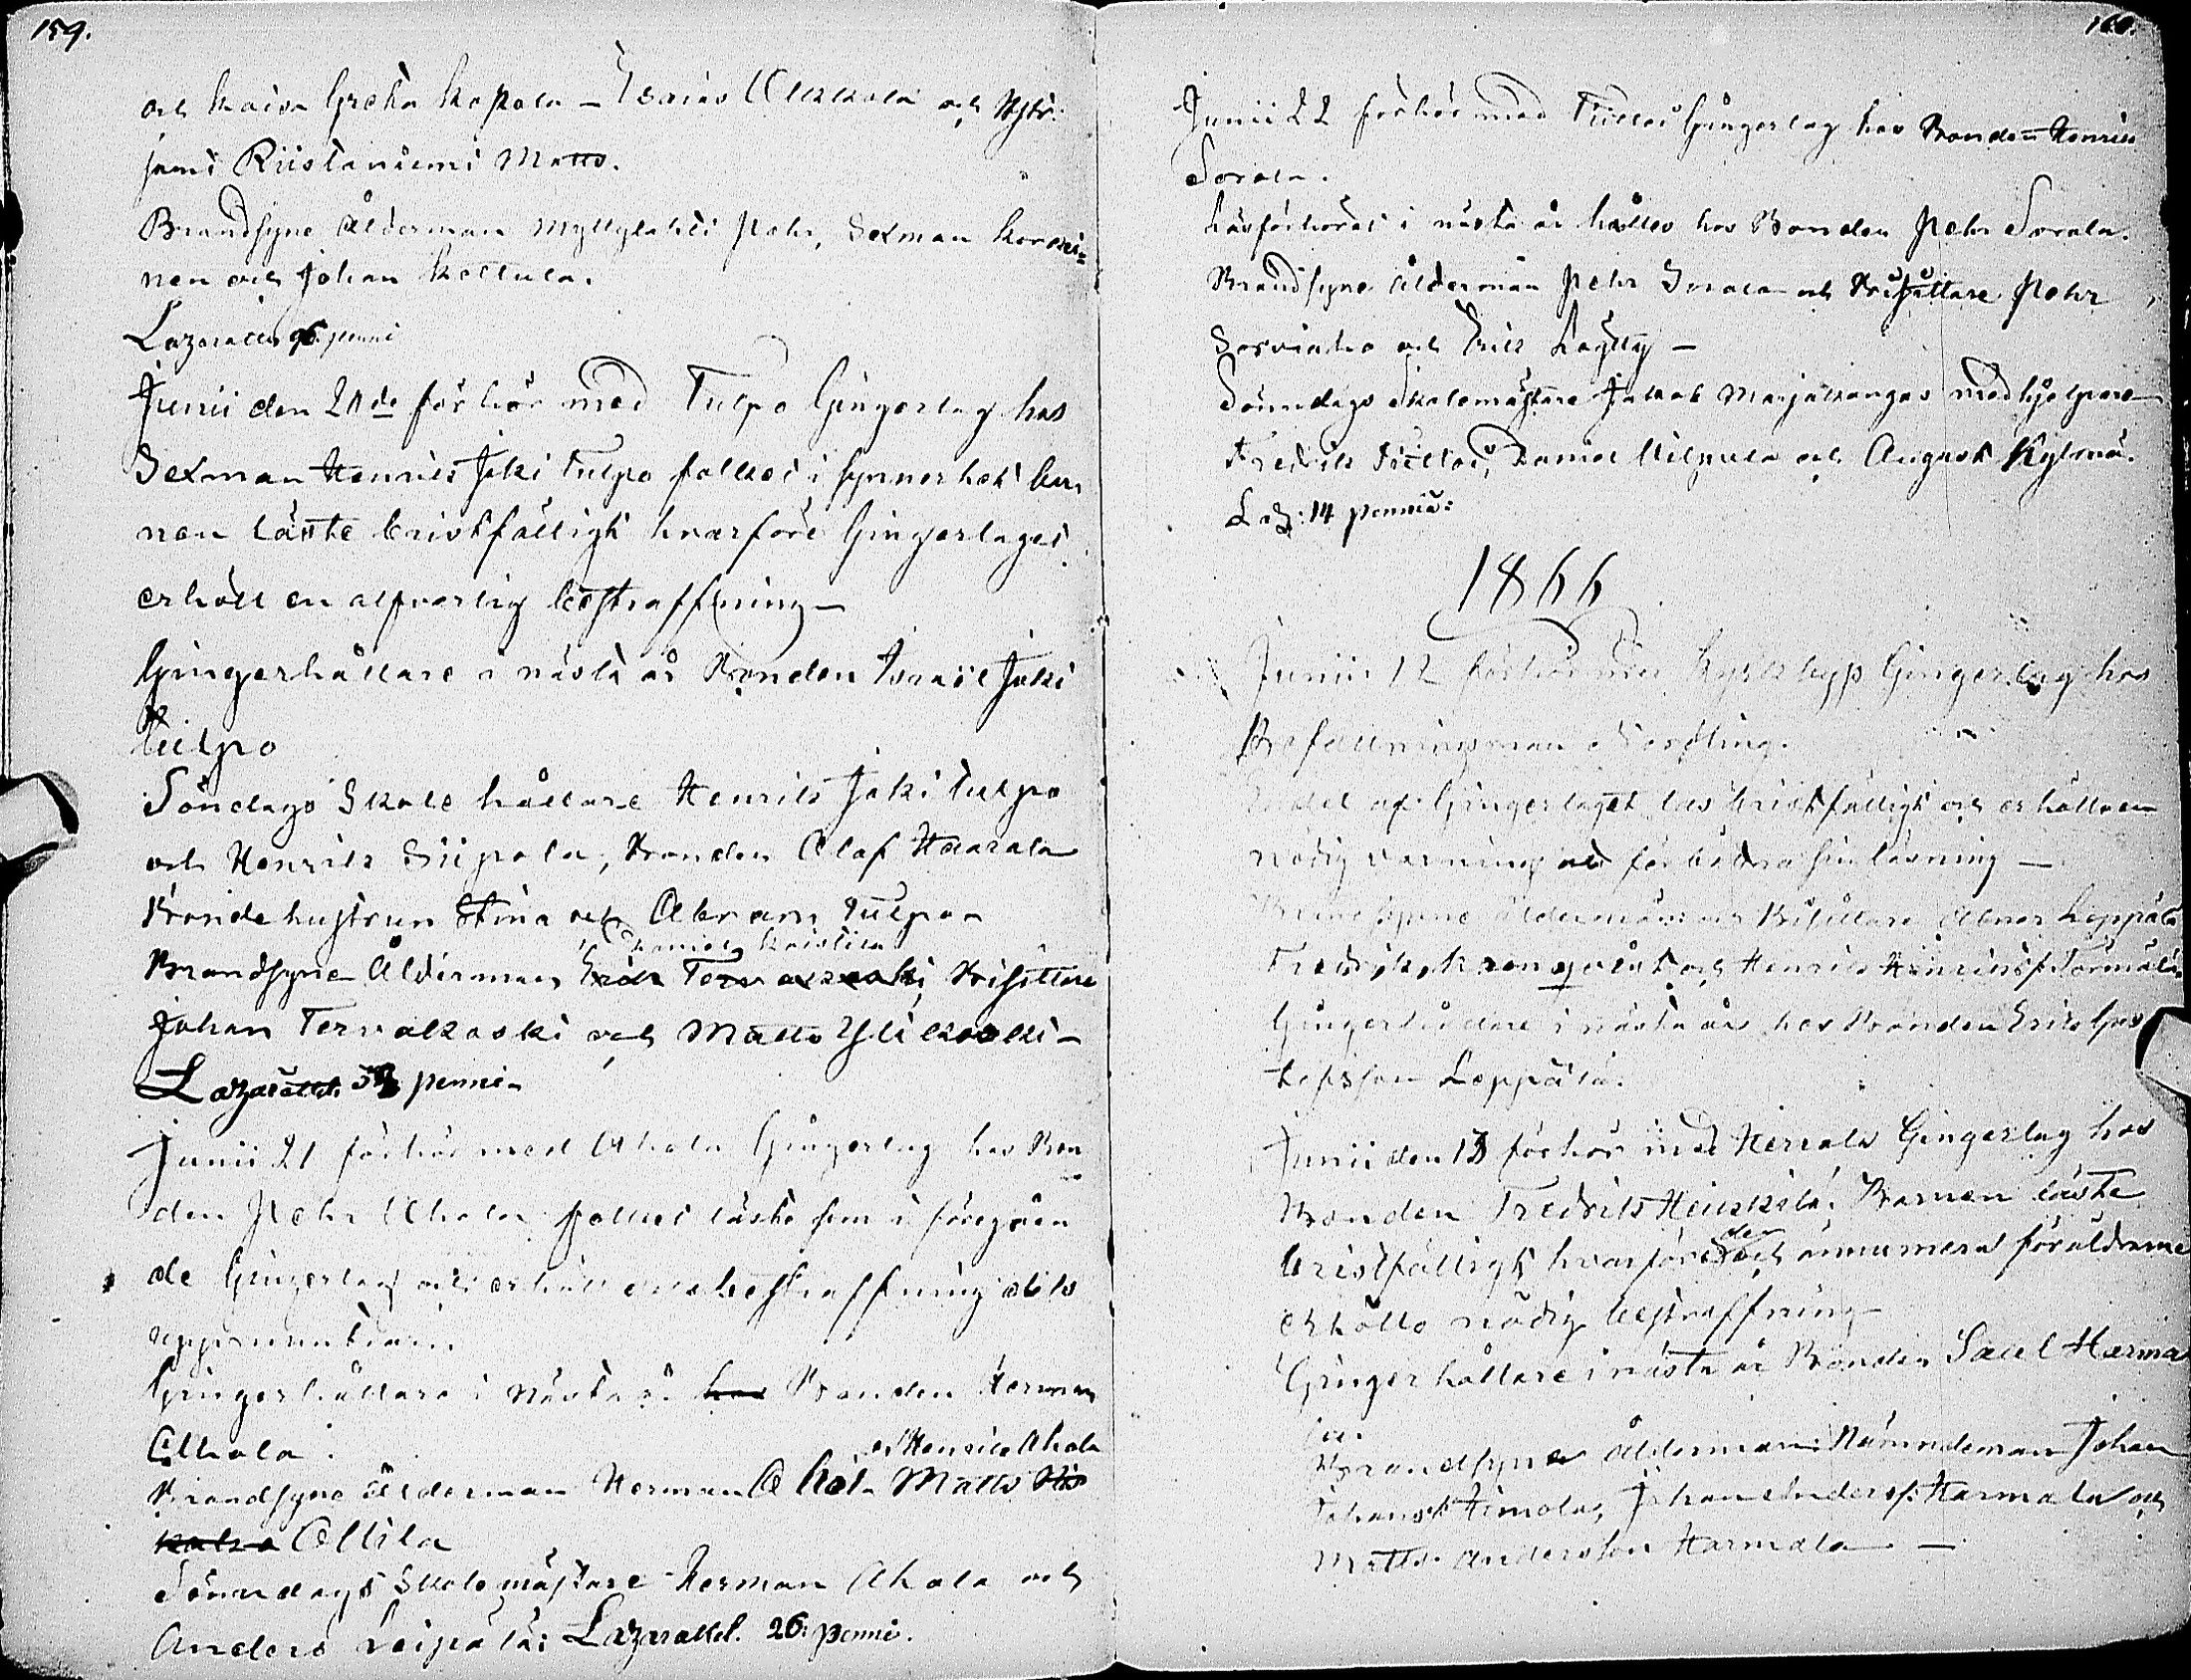 159.
och Maisa Greta Kopola – Esaias Ollikkala och
jemt Riistaniemi Matts.
Brandsyne Ålderman Myllylahti Pehr, Sexman Koroni=
nen och Johan Kottula.
Lazarattet 96 penni
Junii den 20de förhör med Tulpo Gingerlag hos
Sexman Henrik Joki Tulpo folket i synnerhet bar
nen läste bristfälligt hvarföre Gingerlaget
erhöll en alfvarlig bestraffning –
Gingerhållare i nästa år Bonden Isak Joki
Tulpo
Söndags Skole hållare Henrik Joki Tulpo
och Henrik Siipola, Bonden Olof Haarala
Bonde hustrun Stina och Abram Tulpo –
Daniel Kaistila
Brandsyne Ålderman Erik Tervakoski Bisittare
Johan Tervakoski och Matts Ylikoski –
Lazarattet penni –
Junii 21 förhör med Ahola Gingerlag hos Bon
den Pehr Ahola folket läste som i föregåen
de Gingerlag och erhöll en bestraffning dels
uppmuntran.
Gingerhållare i nästa år hos Bonden Herman
Ahola.
och Henrik Ahola
Brandsyne ålderman Herman Ahola Matts
Ollila
Sönndags Skolemästare Herman Ahola och
Anders Leipälä: Lazarattet. 26. penni.
160.
Junii 22 förhör med Gingerlag hos Bonden Henrik
Sorola.
Läsförhöret i nästa år hålles hos Bonden Pehr Sorola.
Brandsyne Ålderman Pehr Sorola och Bisittare Pehr
Sorvinho och Erik Löytty –
Sönndags Skolemästare Jakob Marjakangas medhjelpare
Fredrik Daniel Vilpula och August Kylmä.
Laz: 14 penniä:
1866
Junii 12 förhör med Kyrkbyn Gingerlag hos
Befallningsman Nordling.
En del af Gingerlaget las bristfälligt och erhöllo en
nödig varning att förbättra sin läsning –
Brandsyne åldermän och Bisittare Abner Leppälä
Fredrik Kronqvist och Henrik Henriksson Törmälä.
Gingerhållare i nästa år hos Bonden Erik Gus
tafsson Leppälä.
Junii den 13 förhör med Herrala Gingerlag hos
Bonden Fredrik Heikkilä. Barnen läste
bristfälligt hvarföre de och ännu mera föräldrarne
erhöllo nödig bestraffning
Ginger hållare i nästa år Bonden Saul Harma
la.
Brandsyne ålderman: Nämndeman Johan
Johanss. Himola, Johan Anderss. Harmala och
Matts Andersson Harmala –